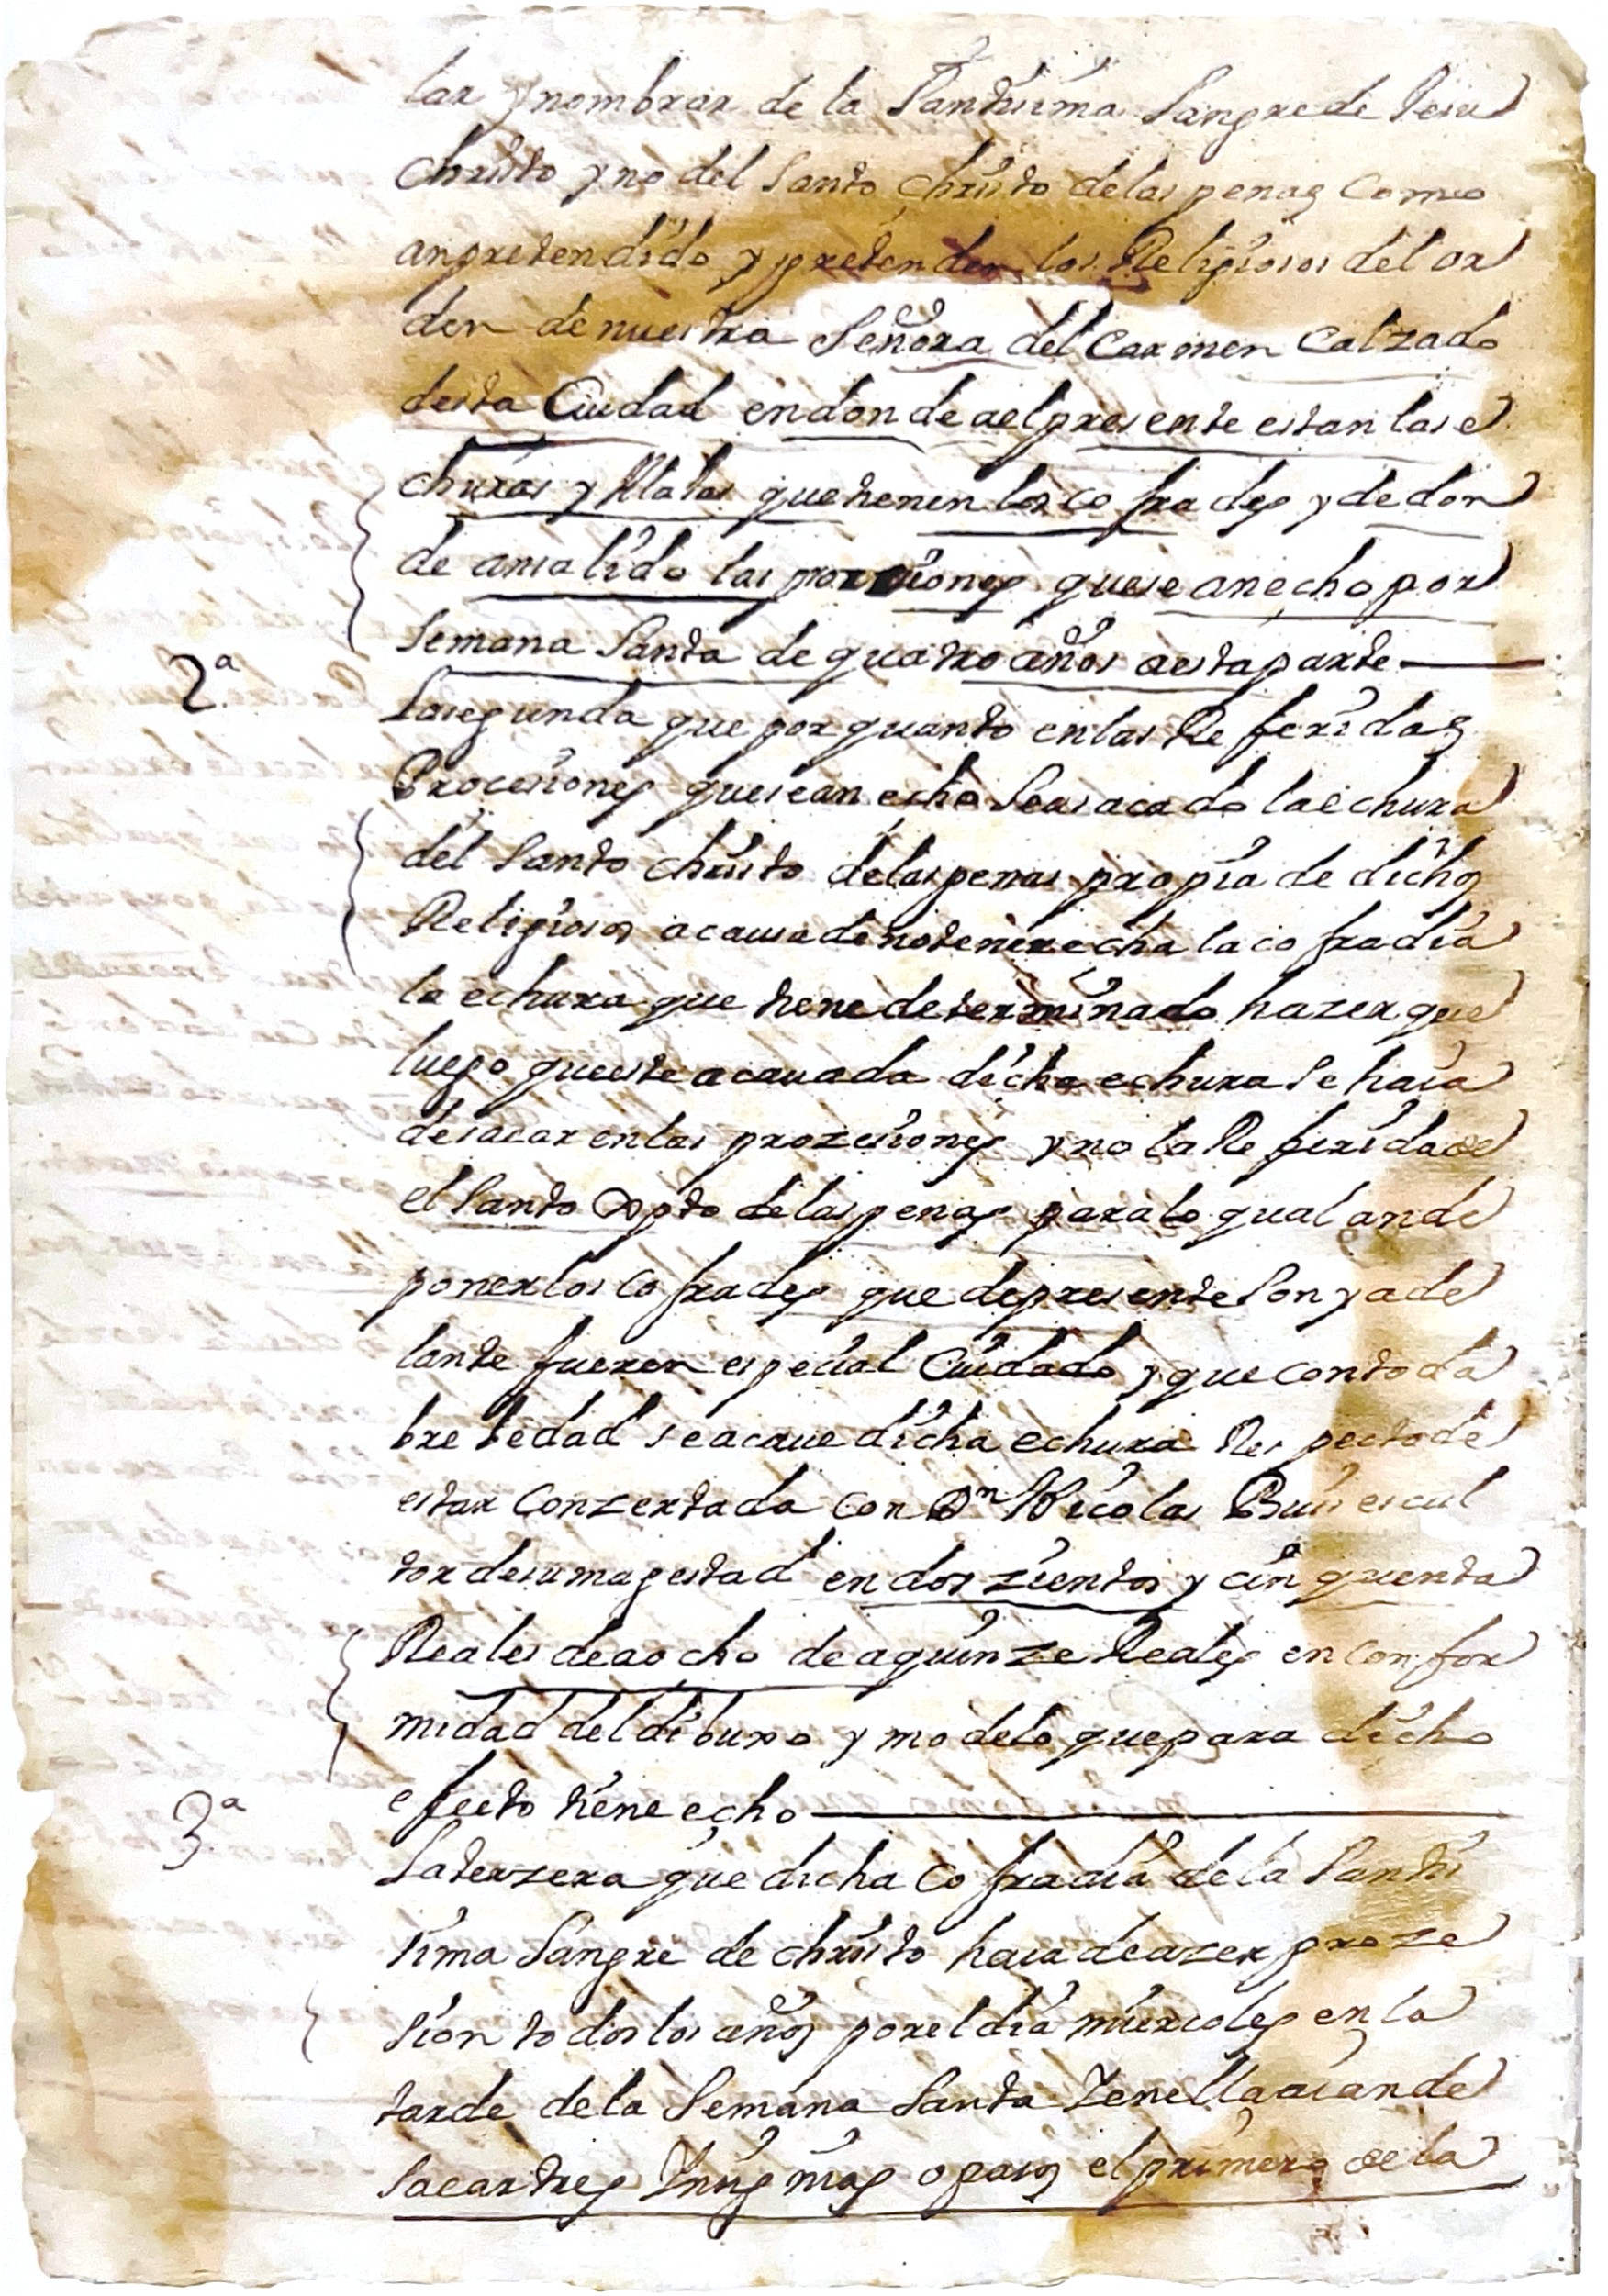 lar y nombrar de la Santissima Sangre de Jesu
christo y no del Santo christo de las penas Como
an pretendido y pretenden los Religiosos del or
den de nuestra Señora del Carmen Calzado
desta Ciudad en donde ael presente estan las e
churas y Alajas que tienen los co frades y de don
de an salido las proziziones que se an echo por
Semana Santa de quatro años aesta parte
2ª
La segunda que por quanto en las Re feridas
Procesiones que se an echo Se a sacado la echura
del Santo christo de las penas propia de dichos
Religiosos a causa de no tener echa la co fradia
la echura que tiene determinado hazer que
luego que este acavada dicha echura Se haia
de sacar en las proziziones y no la Re ferida de
el Santo Xpto de las penas para lo qual an de
poner los Co frades que de presente Son y ade
lante fueren especial Cuidado y que con toda
bre bedad se acave dicha echura Res pecto de
estar Conzertada con Dn Nicolas Busi escul
tor de su magestad en dos zientos y cin quenta
Reales de a ocho de a quinze Reales en con for
midad del dibuxo y modelo que para dicho
e fecto tiene echo
3ª
La terzera que dicha Co fradia de la Santis
sima Sangre de christo haia de azer proze
sion to dos los años por el dia miercoles en la
tarde de la Semana Santa Y en ella aian de
sacar tres Ynsignias o pasos el primero de la